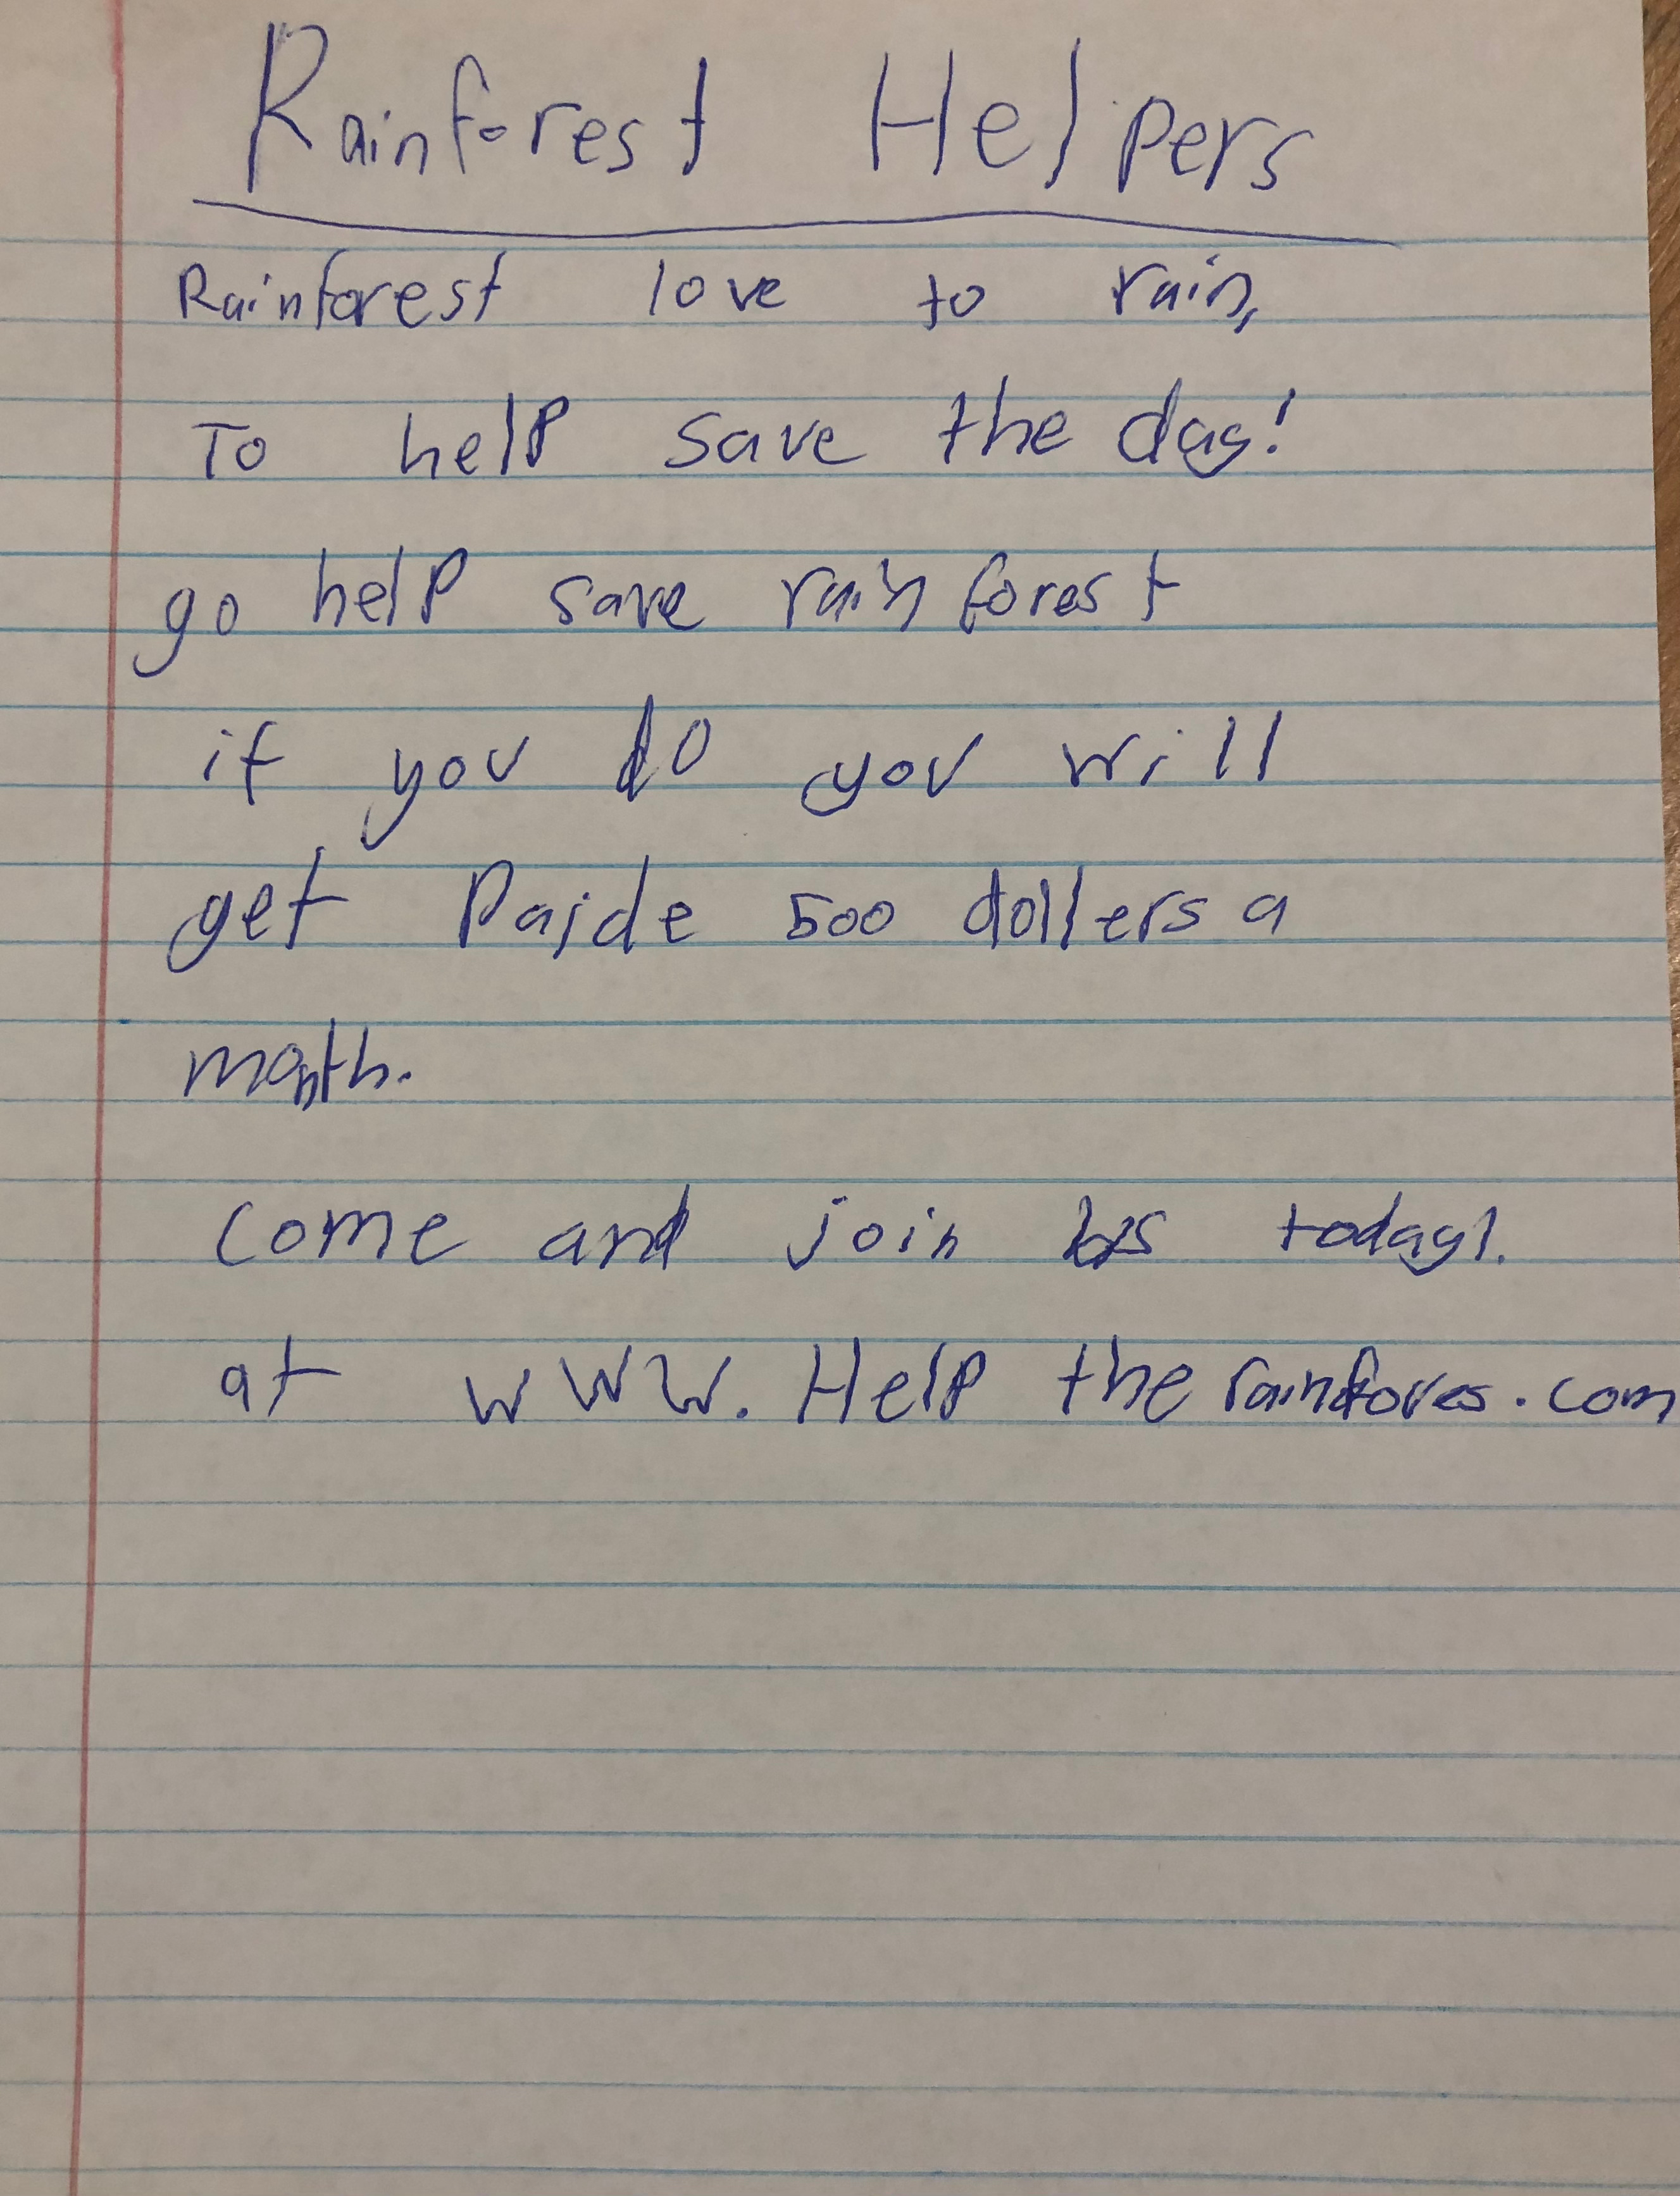 Rainforest Helpers
Rainforest love to rain,
To help save the day!
go help save rainforest
if you do you will
get Paide 500 dollers a
month.
Come and join us today!.
at www.Help the rainfores.com